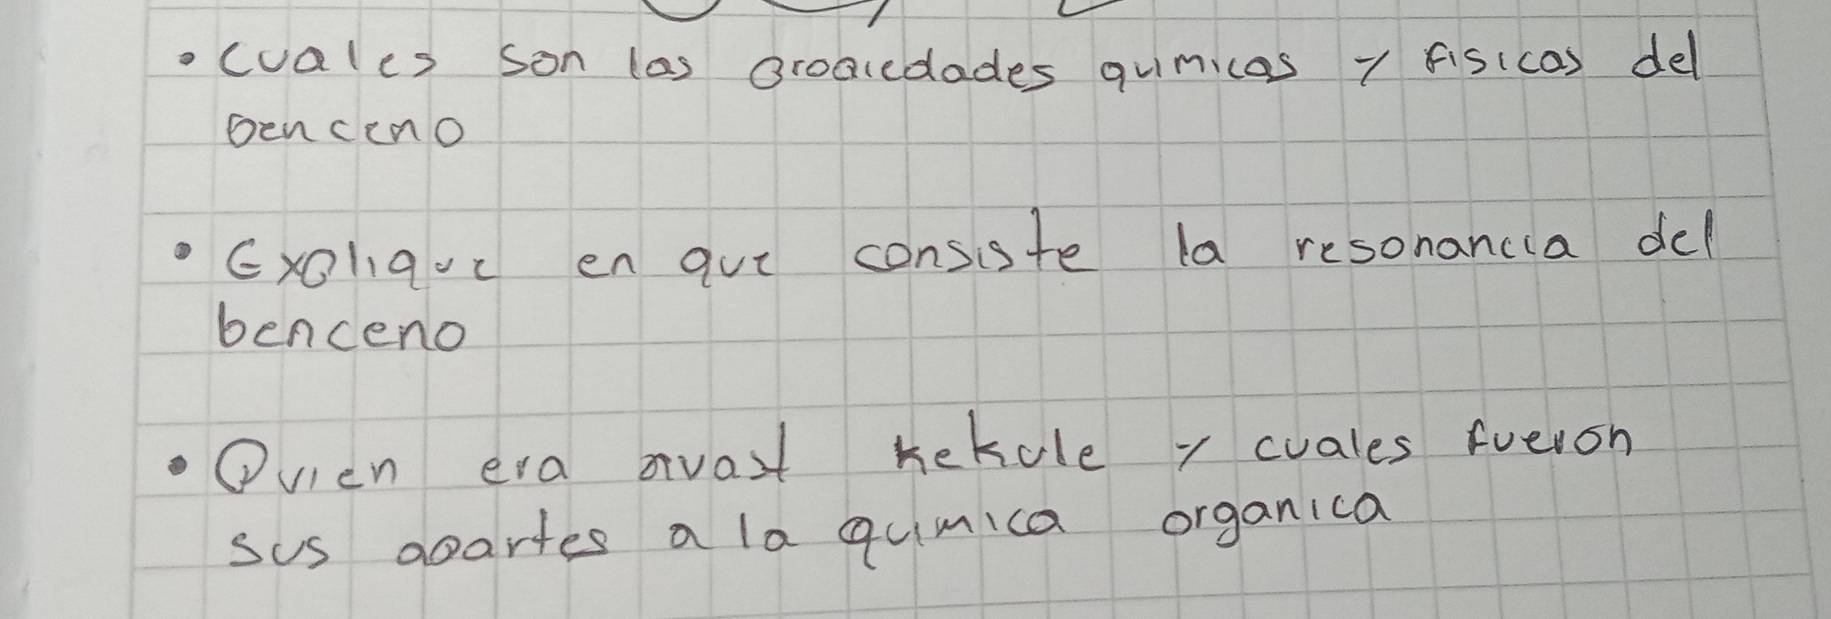 • Cuales son las propiedades quimicas y fisicas del
benceno
• Explique en que consiste la resonancia del
benceno
• Quien era Kekule y cuales fueron
sus apartes a la quimica organica